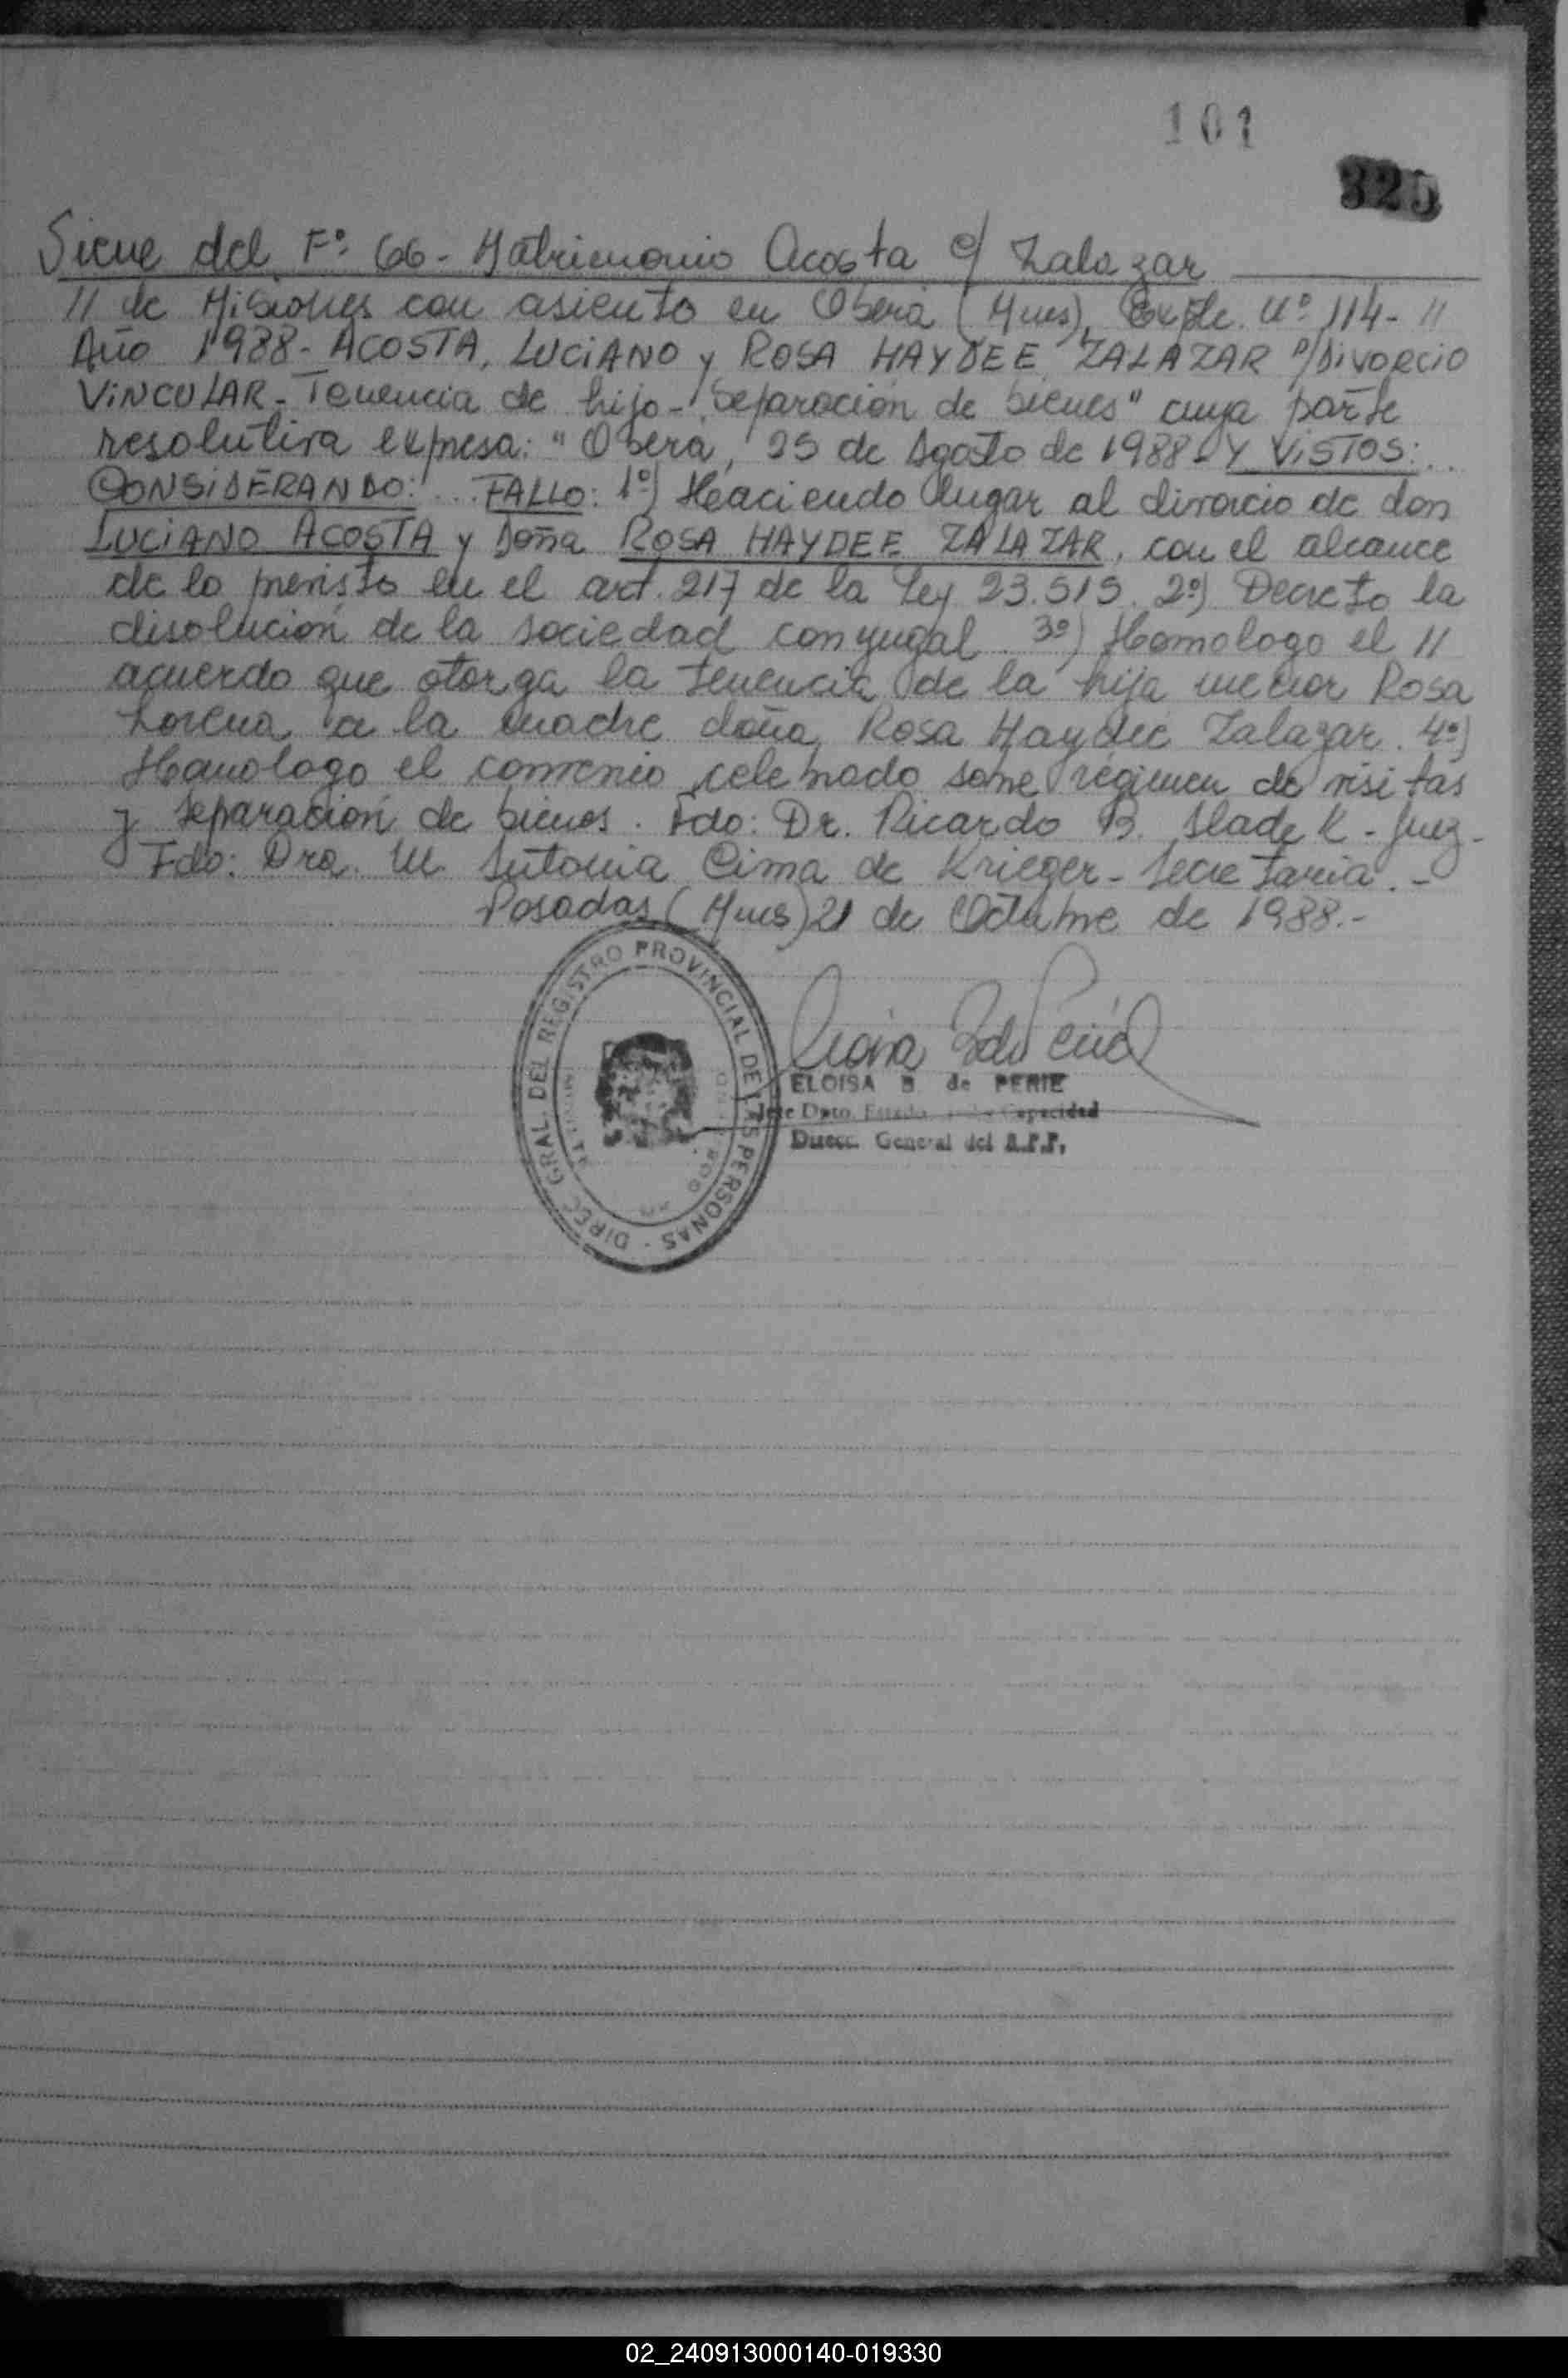 101
320
Sicue del F° 66 - Matrimonio Acosta c/ Zalazar
// de Misiones con asiento en Oberá (Mnes), Expte. N° 114- //
Año 1988- ACOSTA, LUCIANO y ROSA HAYDEE ZALAZAR p/DIVORCIO
VINCULAR - Tenencia de hijo - Separación de bienes" cuya parte
resolutiva expresa: "Oberá, 25 de Agosto de 1988- Y VISTOS: ..
CONSIDERANDO: ... FALLO: 1°) Heaciendo lugar al divorcio de don
LUCIANO ACOSTA y Doña ROSA HAYDEE ZALAZAR, con el alcance
de lo previsto en el art. 217 de la Ley 23.515. 2°) Decreto la
disolución de la sociedad conyugal. 3°) Homologo el //
acuerdo que otorga la tenencia de la hija menor Rosa
Lorena a la madre doña Rosa Haydeé Zalazar. 4°)
Homologo el convenio celebrado sobre régimen de visitas
y separación de bienes. Fdo: Dr. Ricardo B. Slade K - Juez -
Fdo: Dra. M Antonia Cima de Krieger - Secretaria. -
Posadas (Mnes) 21 de Octubre de 1988.-
DIREC GRAL. DEL REGISTRO PROVINCIAL DE LAS PERSONAS -
ELOISA B de PERIE
Jefe Dpto. Capacidad
Direcc. General del R.P.P.
02_240913000140-019330